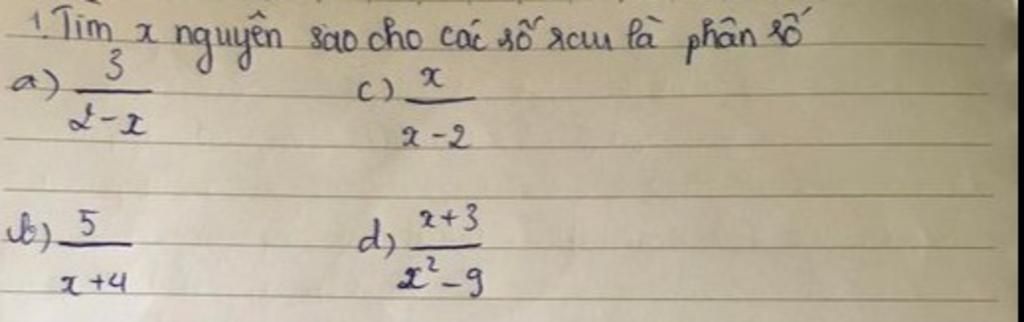 1. Tìm x nguyên sao cho các số sau là phân số
a) 3/(2-x) c) x/(x-2)
b) 5/(x+4) d) (x+3)/(x²-9)